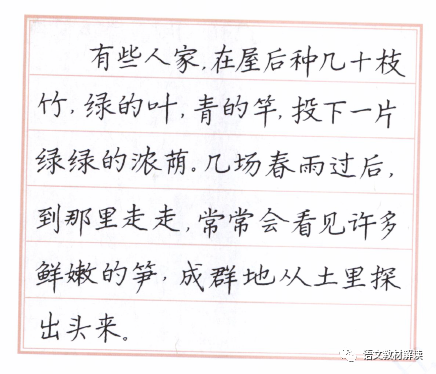 有些人家，在屋后种几十枝
竹，绿的叶，青的竿，投下一片
绿绿的浓荫。几场春雨过后，
到那里走走，常常会看见许多
鲜嫩的笋，成群地从土里探
出头来。
语文教材解读